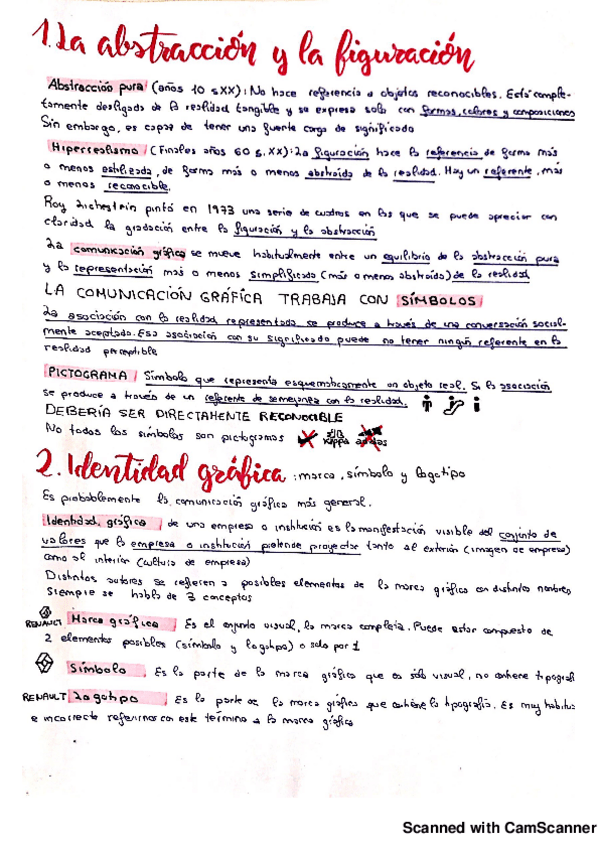 1. La abstracción y la figuración
Abstracción pura (años 10 s.XX): No hace referencia a objetos reconocibles. Está comple-
tamente desligado de la realidad tangible y se expresa solo con formas, colores y composiciones
Sin embargo, es capaz de tener una fuerte carga de significado
Hiperrealismo (Finales años 60 s. XX): La figuración hace la referencia de forma más
o menos estilizada, de forma más o menos abstraída de la realidad. Hay un referente, más
o menos reconocible.
Roy Lichestein pintó en 1973 una serie de cuadros en los que se puede apreciar con
claridad la gradación entre la figuración y la abstracción
La comunicación gráfica se mueve habitualmente entre un equilibrio de la abstracción pura
y la representación más o menos simplificada (más o menos abstraída) de la realidad
LA COMUNICACIÓN GRÁFICA TRABAJA CON SÍMBOLOS
La asociación con la realidad representada se produce a través de una conversación social-
mente aceptada. Esa asociación con su significado puede no tener ningún referente en la
realidad perceptible
PICTOGRAMA Símbolo que representa esquemáticamente un objeto real. Si la asociación
se produce a través de un referente de semejanza con la realidad.
DEBERÍA SER DIRECTAMENTE RECONOCIBLE
No todos los símbolos son pictogramas Kappa adidas
2. Identidad gráfica: marca, símbolo y logotipo
Es probablemente la comunicación gráfica más general.
Identidad gráfica de una empresa o institución es la manifestación visible del conjunto de
valores que la empresa o institución pretende proyectar tanto al exterior (imagen de empresa)
como al interior (cultura de empresa)
Distintos autores se refieren a posibles elementos de la marca gráfica con distintos nombres
Siempre se habla de 3 conceptos
RENAULT Marca gráfica Es el conjunto visual, la marca completa. Puede estar compuesto de
2 elementos posibles (símbolo y logotipo) o solo por 1
Símbolo Es la parte de la marca gráfica que es sólo visual, no contiene tipografí
RENAULT Logotipo Es la parte de la marca gráfica que contiene la tipografía. Es muy habitua
e incorrecto referirnos con este término a la marca gráfica
Scanned with CamScanner